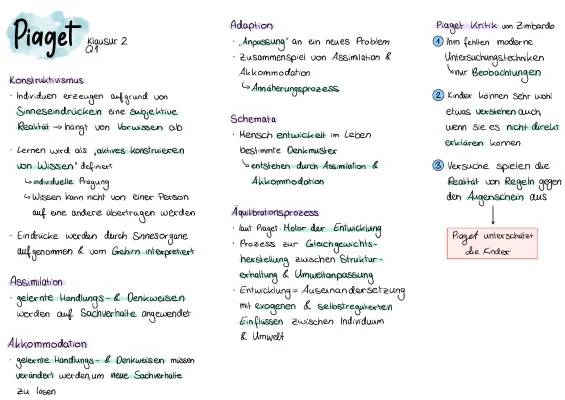 Piaget Klausur 2
Q1
Konstruktivismus
· Individuen erzeugen aufgrund von
Sinneseindrücken eine subjektive
Realität → hängt von Vorwissen ab
· Lernen wird als „aktives konstruieren
von Wissen" definiert
↳ individuelle Prägung
↳ Wissen kann nicht von einer Person
auf eine andere übertragen werden
· Eindrücke werden durch Sinnesorgane
aufgenommen & vom Gehirn interpretiert
Assimilation
· gelernte Handlungs- & Denkweisen
werden auf Sachverhalte angewendet
Akkommodation
· gelernte Handlungs- & Denkweisen müssen
verändert werden, um neue Sachverhalte
zu lösen
Adaption
· „Anpassung" an ein neues Problem
· Zusammenspiel von Assimilation &
Akkommodation
↳ Annäherungsprozess
Schemata
· Mensch entwickelt im Leben
bestimmte Denkmuster
↳ entstehen durch Assimilation &
Akkommodation
Äquilibrationsprozess
· laut Piaget Motor der Entwicklung
· Prozess zur Gleichgewichts-
herstellung zwischen Struktur-
erhaltung & Umweltanpassung
· Entwicklung = Auseinandersetzung
mit exogenen & selbstregulierten
Einflüssen zwischen Individuum
& Umwelt
Piaget Kritik von Zimbardo
① Ihm fehlten moderne
Untersuchungstechniken
↳ nur Beobachtungen
② Kinder können sehr wohl
etwas verstehen auch
wenn sie es nicht direkt
erklären können
③ Versuche spielen die
Realität von Regeln gegen
den Augenschein aus
↓
Piaget unterschätzt
die Kinder